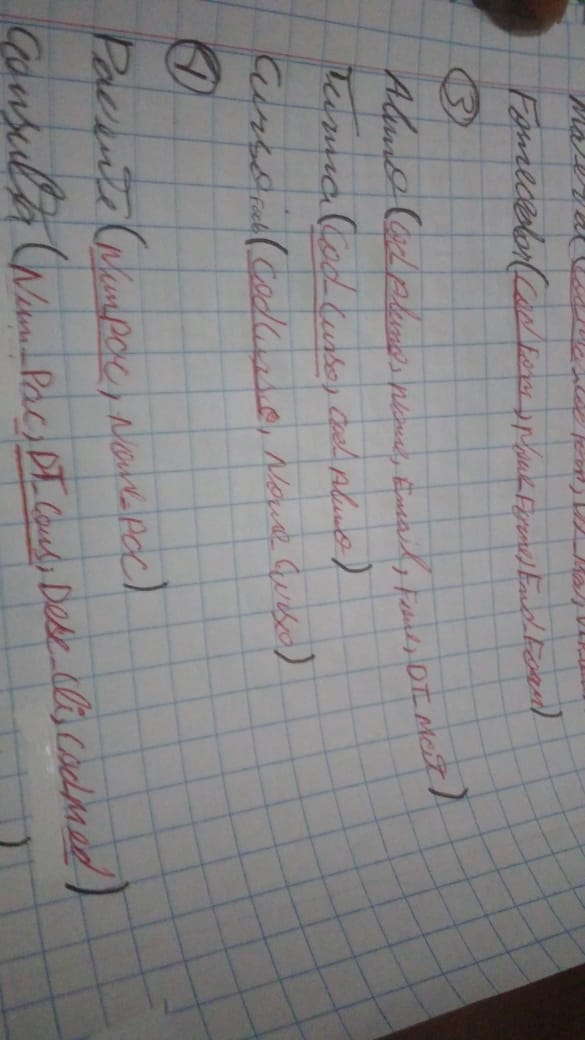 Fornecedor(Cod Forn, Nome Forne, End Forn)
3
Aluno (Cod Aluno, Nome, Email, Fone, DT_Mat)
Turma (Cod_Curso, Cod_Aluno)
Curso (Cod Curso, Nome_Curso)
Paciente (Num Pac, Nome_Pac)
Consulta (Num_Pac, DT_Cons, Desc_Cli, Cod Med)